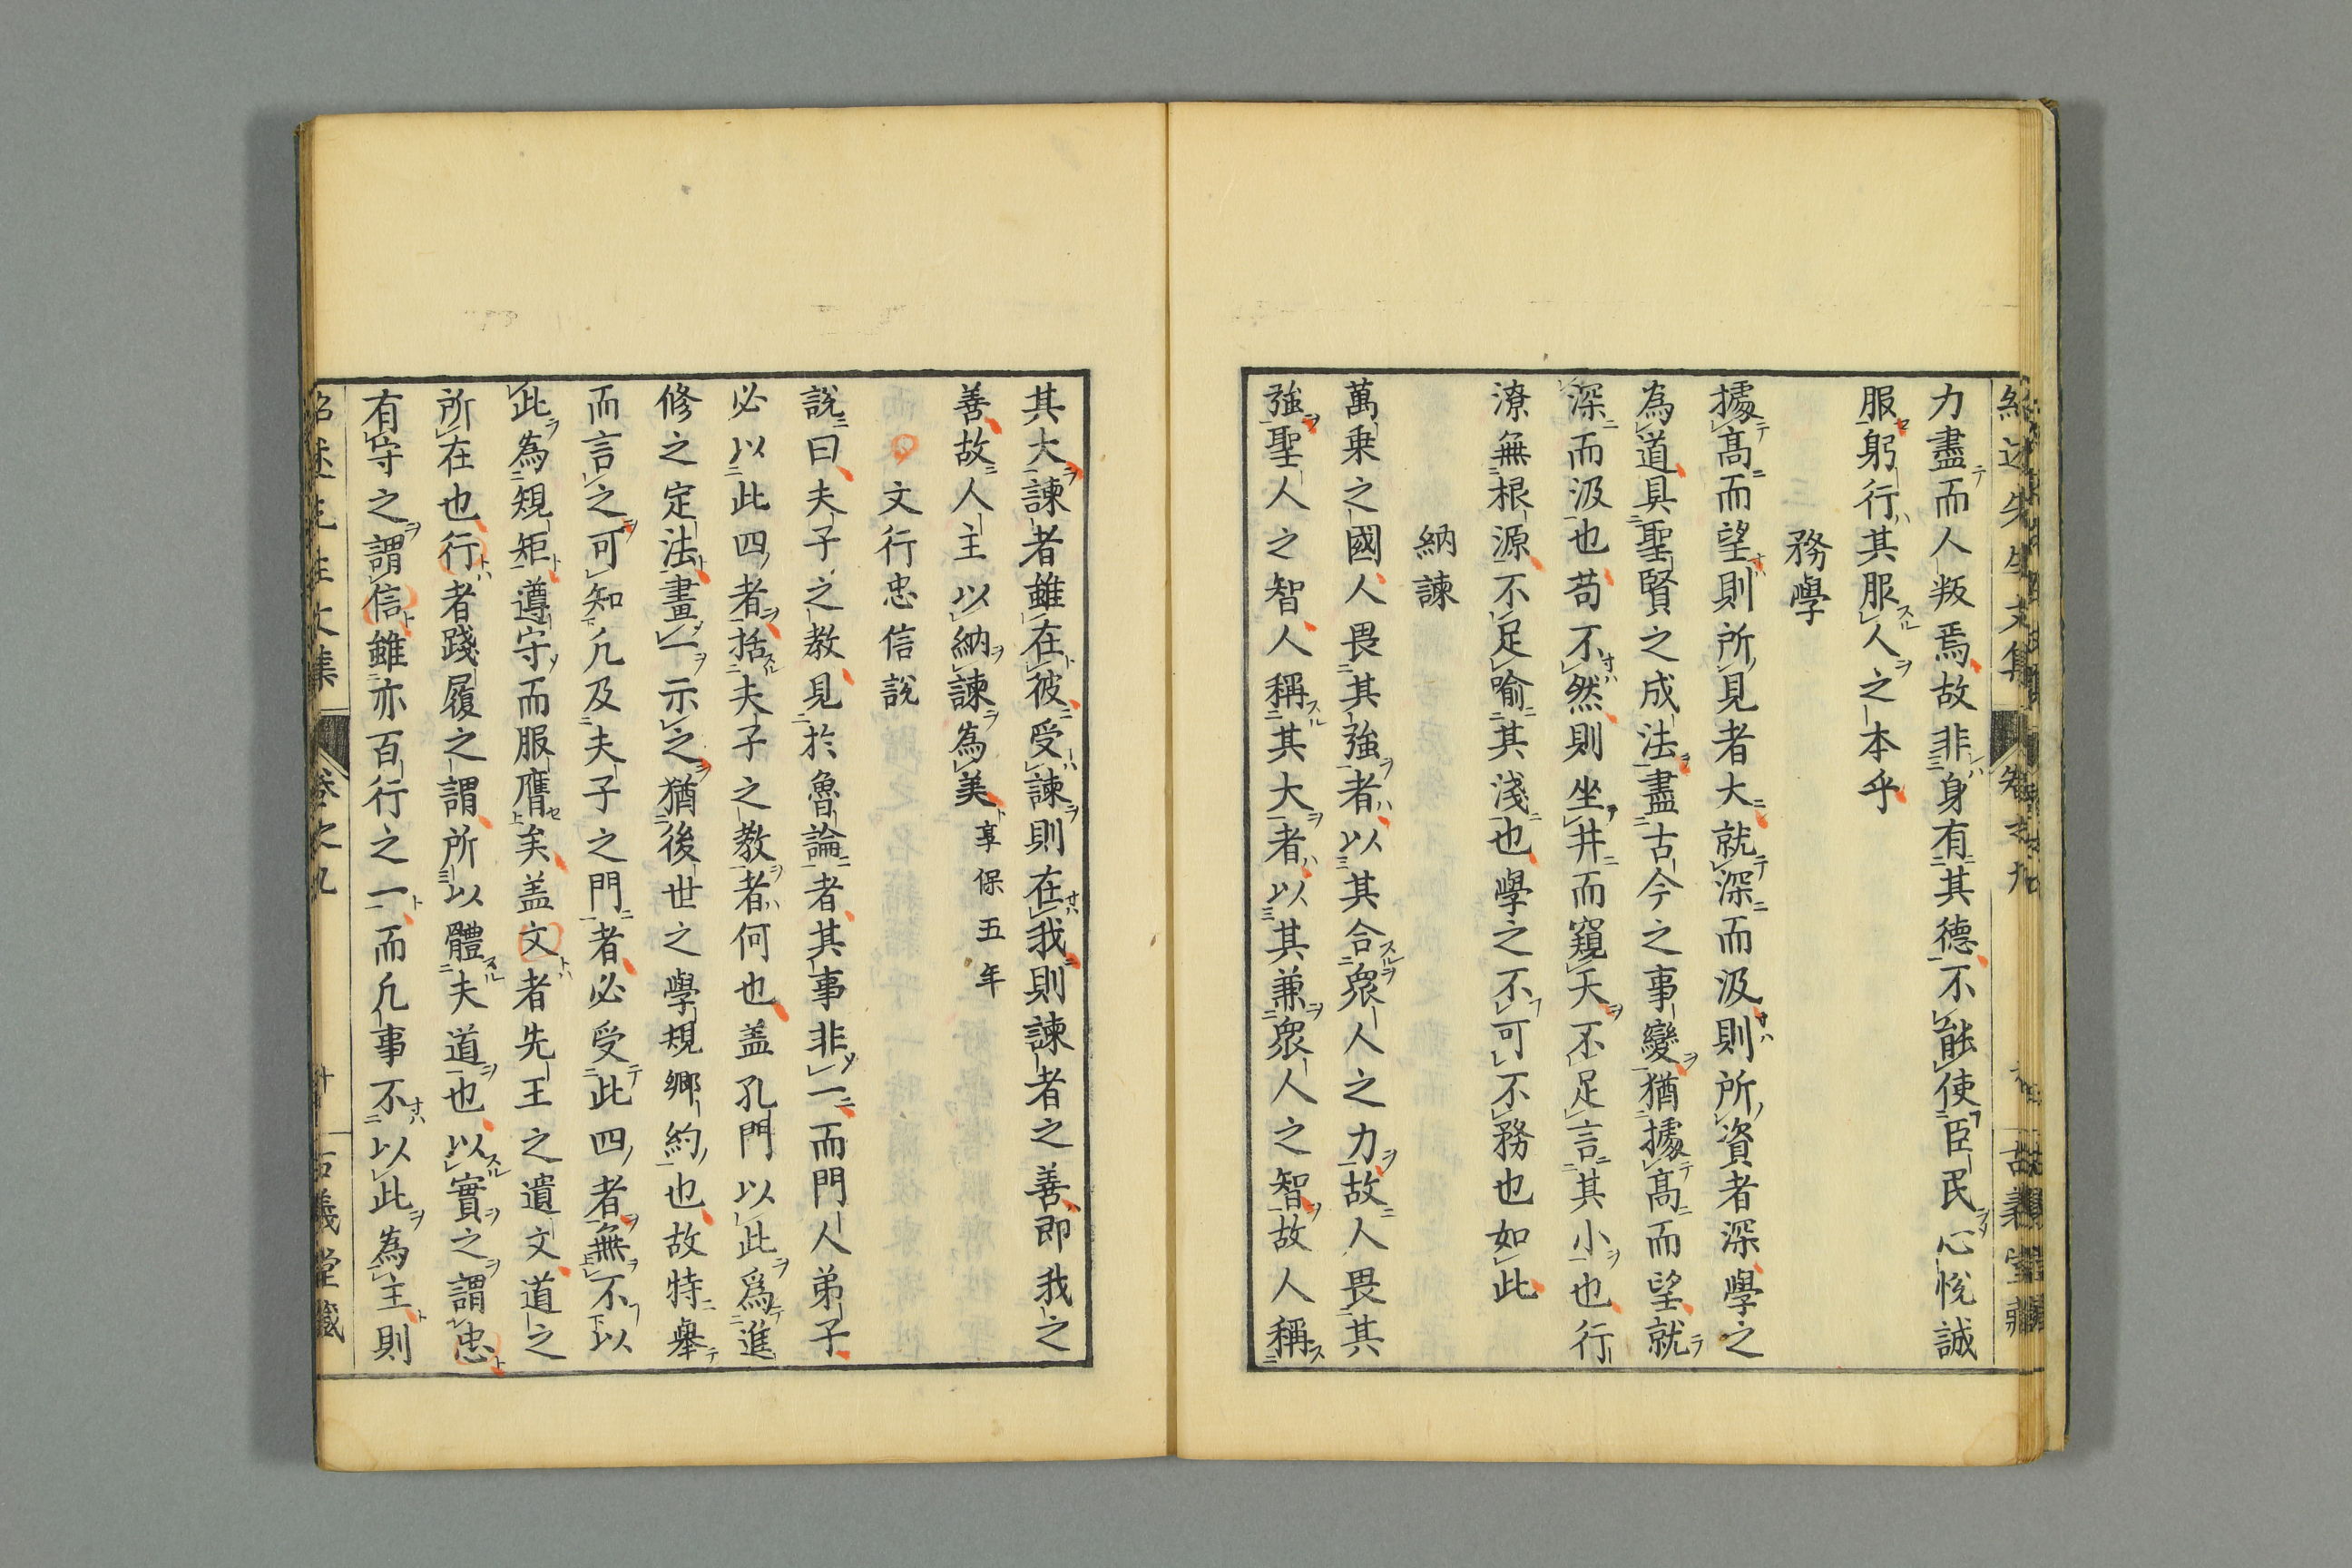 紹述先生文集 卷之九 古義堂藏
力盡而人叛焉故非身有其德不能使臣民心悅誠
服躬行其服人之本乎
務學
據高而望則所見者大就深而汲則所資者深學之
為道具聖賢之成法盡古今之事變猶據高而望就
深而汲也苟不然則坐井而窺天不足言其小也行
潦無根源不足喻其淺也學之不可不務也如此
納諫
萬乗之國人畏其強者以其合衆人之力故人畏其
強聖人之智人稱其大者以其兼衆人之智故人稱
其大諫者雖在彼受諫則在我則諫者之善即我之
善故人主以納諫為美 享保五年
文行忠信說
說曰夫子之教見於魯論者其事非一而門人弟子
必以此四者括夫子之教者何也盖孔門以此爲進
修之定法畫一示之猶後世之學規鄉約也故特舉
而言之可知凢及夫子之門者必受此四者無不以
此為規矩遵守而服膺矣盖文者先王之遺文道之
所在也行者踐履之謂所以體夫道也以實之謂忠
有守之謂信雖亦百行之一而凢事不以此為主則
紹述先生文集 卷之九 古義堂藏